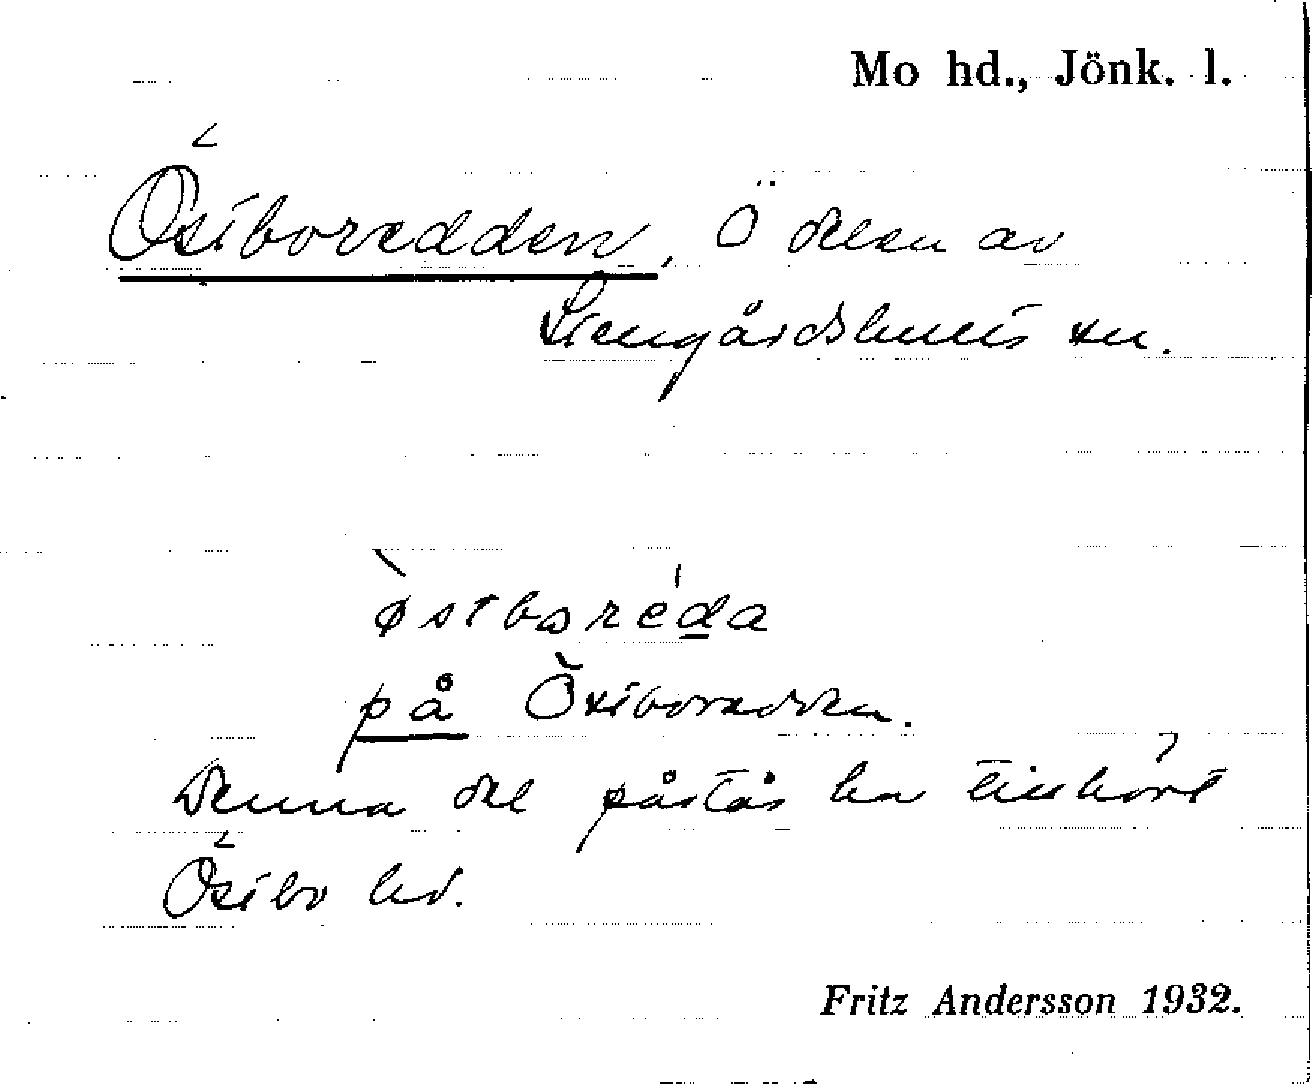 Mo hd., Jönk. l.
Östboredden, Ö delen av
Stengårdshults sn.
østboreda
på Östboredden.
Denna del påstås ha tillhört
Östbo hd.
Fritz Andersson 1932.